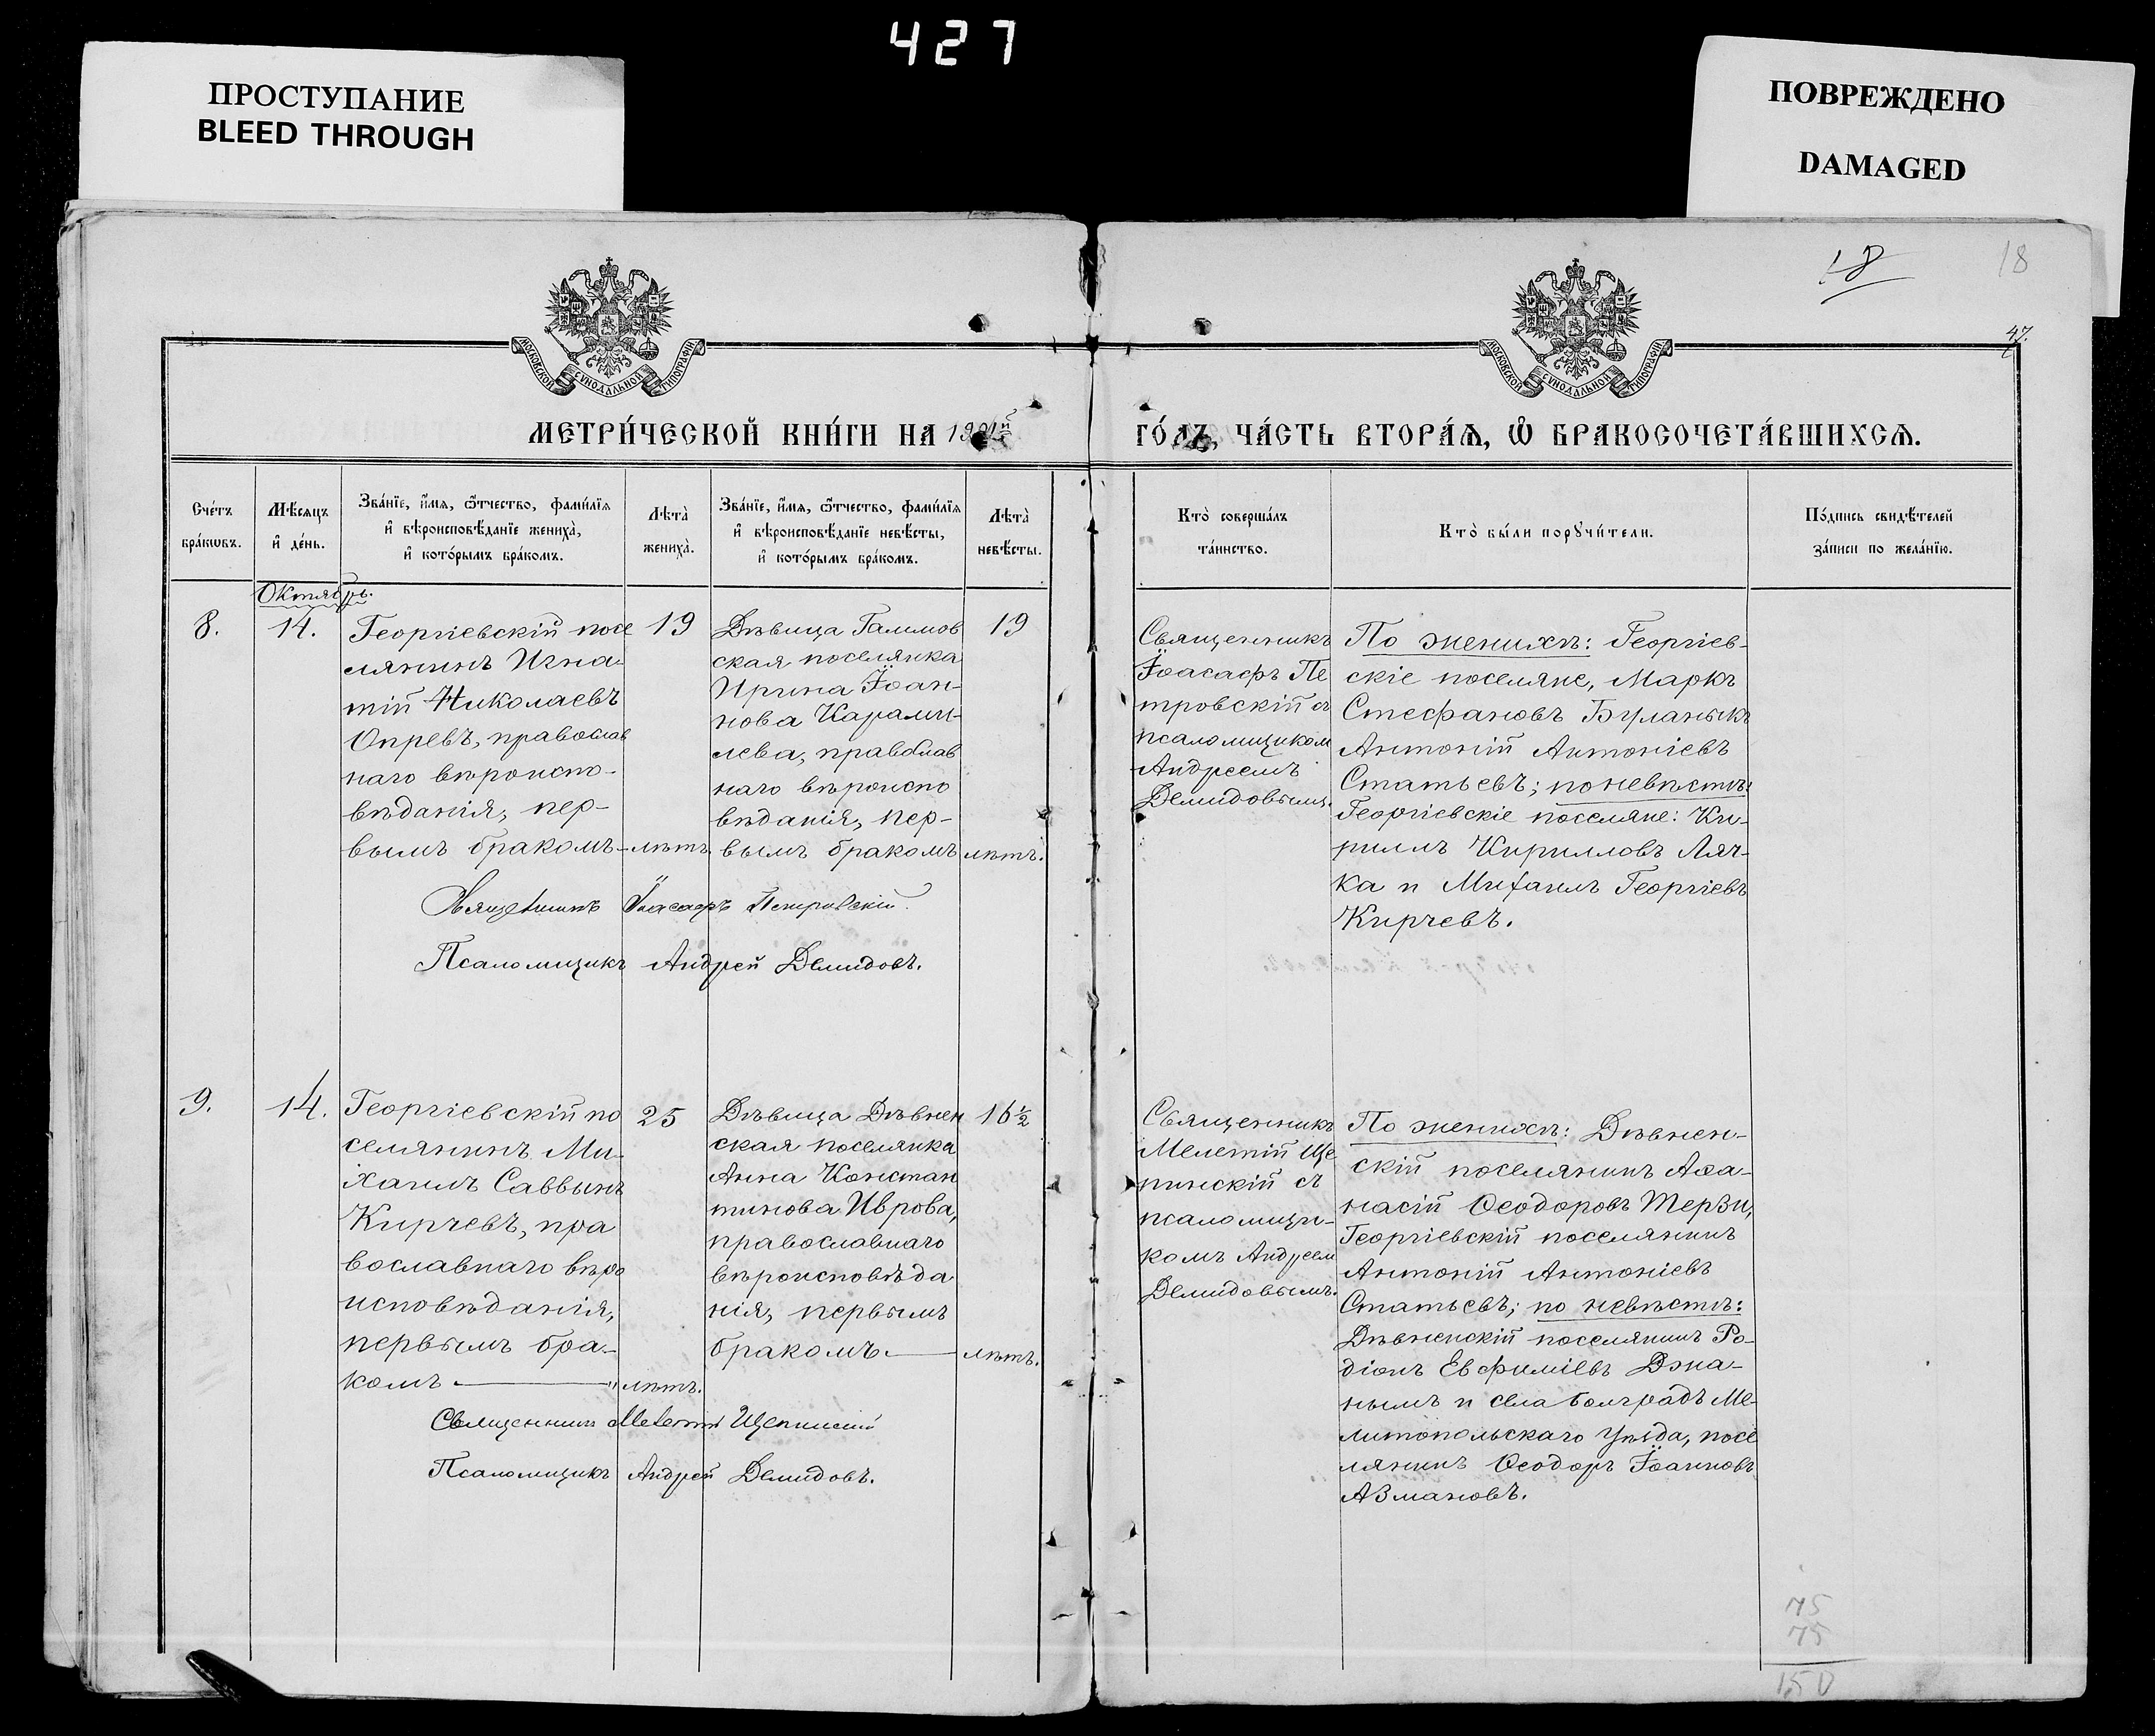 427
ПРОСТУПАНИЕ
BLEED THROUGH
ПОВРЕЖДЕНО
DAMAGED
18
18
47.
МОСКОВСКОЙ СУНОДАЛЬНОЙ ТИПОГРАФІИ
МОСКОВСКОЙ СУНОДАЛЬНОЙ ТИПОГРАФІИ
МЕТРИ́ЧЕСКОЙ КНИ́ГИ НА
ГО́ДЪ, ЧА́СТЬ ВТОРА́Ѧ, Ѡ҆ БРАКОСОЧЕТА́ВШИХСѦ.
Сче́тъ
бра́кѡвъ.
Мѣ́сяцъ
и҆ де́нь.
Зва́нїе, и҆́мѧ, ѻ҆́тчество, фами́лїѧ
и҆ вѣроисповѣ́данїе жениха̀,
и҆ кото́рымъ бра́комъ.
Лѣ́та̀
жениха̀.
Зва́нїе, и҆́мѧ, ѻ҆́тчество, фами́лїѧ
и҆ вѣроисповѣ́данїе невѣ́сты,
и҆ кото́рымъ бра́комъ.
Лѣ́та̀
невѣ́сты.
Кто̀ соверша́лъ
та́инство.
Кто̀ бы́ли порꙋчи́тели.
По́дпись свидѣ́телей
за́писи по жела́нїю.
Октябрь.
8.
14.
Георгіевскій посе
лянинъ Игна-
тій Николаевъ
Опревъ, православ
наго вѣроиспо-
вѣданія, пер-
вымъ бракомъ-
19
лѣтъ.
Дѣвица Галмов
ская поселянка
Ирина Іоан-
нова Карами-
лева, православ
наго вѣроиспо
вѣданія, пер-
вымъ бракомъ
19
лѣтъ.
Священникъ
Іоасафъ Пе
тровскій съ
псаломщиком
Андреемъ
Демидовымъ.
По женихѣ: Георгіев-
скіе поселяне, Маркъ
Стефановъ Буланыкъ
Антоній Антоніевъ
Статьевъ; по невѣстѣ:
Георгіевскіе поселяне: Ки-
риллъ Кирилловъ Ляч-
ка и Михаилъ Георгіевъ
Кирчевъ.
Священникъ Іоасафъ Петровскій.
Псаломщикъ Андрей Демидовъ.
9.
14.
Георгіевскій по
селянинъ Ми-
хаилъ Саввинъ
Кирчевъ, пра
вославнаго вѣро
исповѣданія,
первымъ бра-
комъ
25
лѣтъ.
Дѣвица Дѣвнен
ская поселянка
Анна Констан
тинова Иврова,
православнаго
вѣроисповѣда
нія, первымъ
бракомъ
16½
лѣтъ.
Священникъ
Мелетій Ще
пинскій съ
псаломщи-
комъ Андреем
Демидовымъ.
По женихѣ: Дѣвнен-
скій поселянинъ Аѳа-
насій Ѳеодоровъ Терзи,
Георгіевскій поселянинъ
Антоній Антоніевъ
Статьевъ; по невѣстѣ:
Дѣвненскій поселянинъ Ро-
діонъ Евфиміевъ Джа-
нымъ и села Болградъ Ме-
литопольскаго уѣзда, посе
лянинъ Ѳеодоръ Іоанновъ
Азмановъ.
Священникъ Мелетій Щепинскій
Псаломщикъ Андрей Демидовъ.
75
75
150